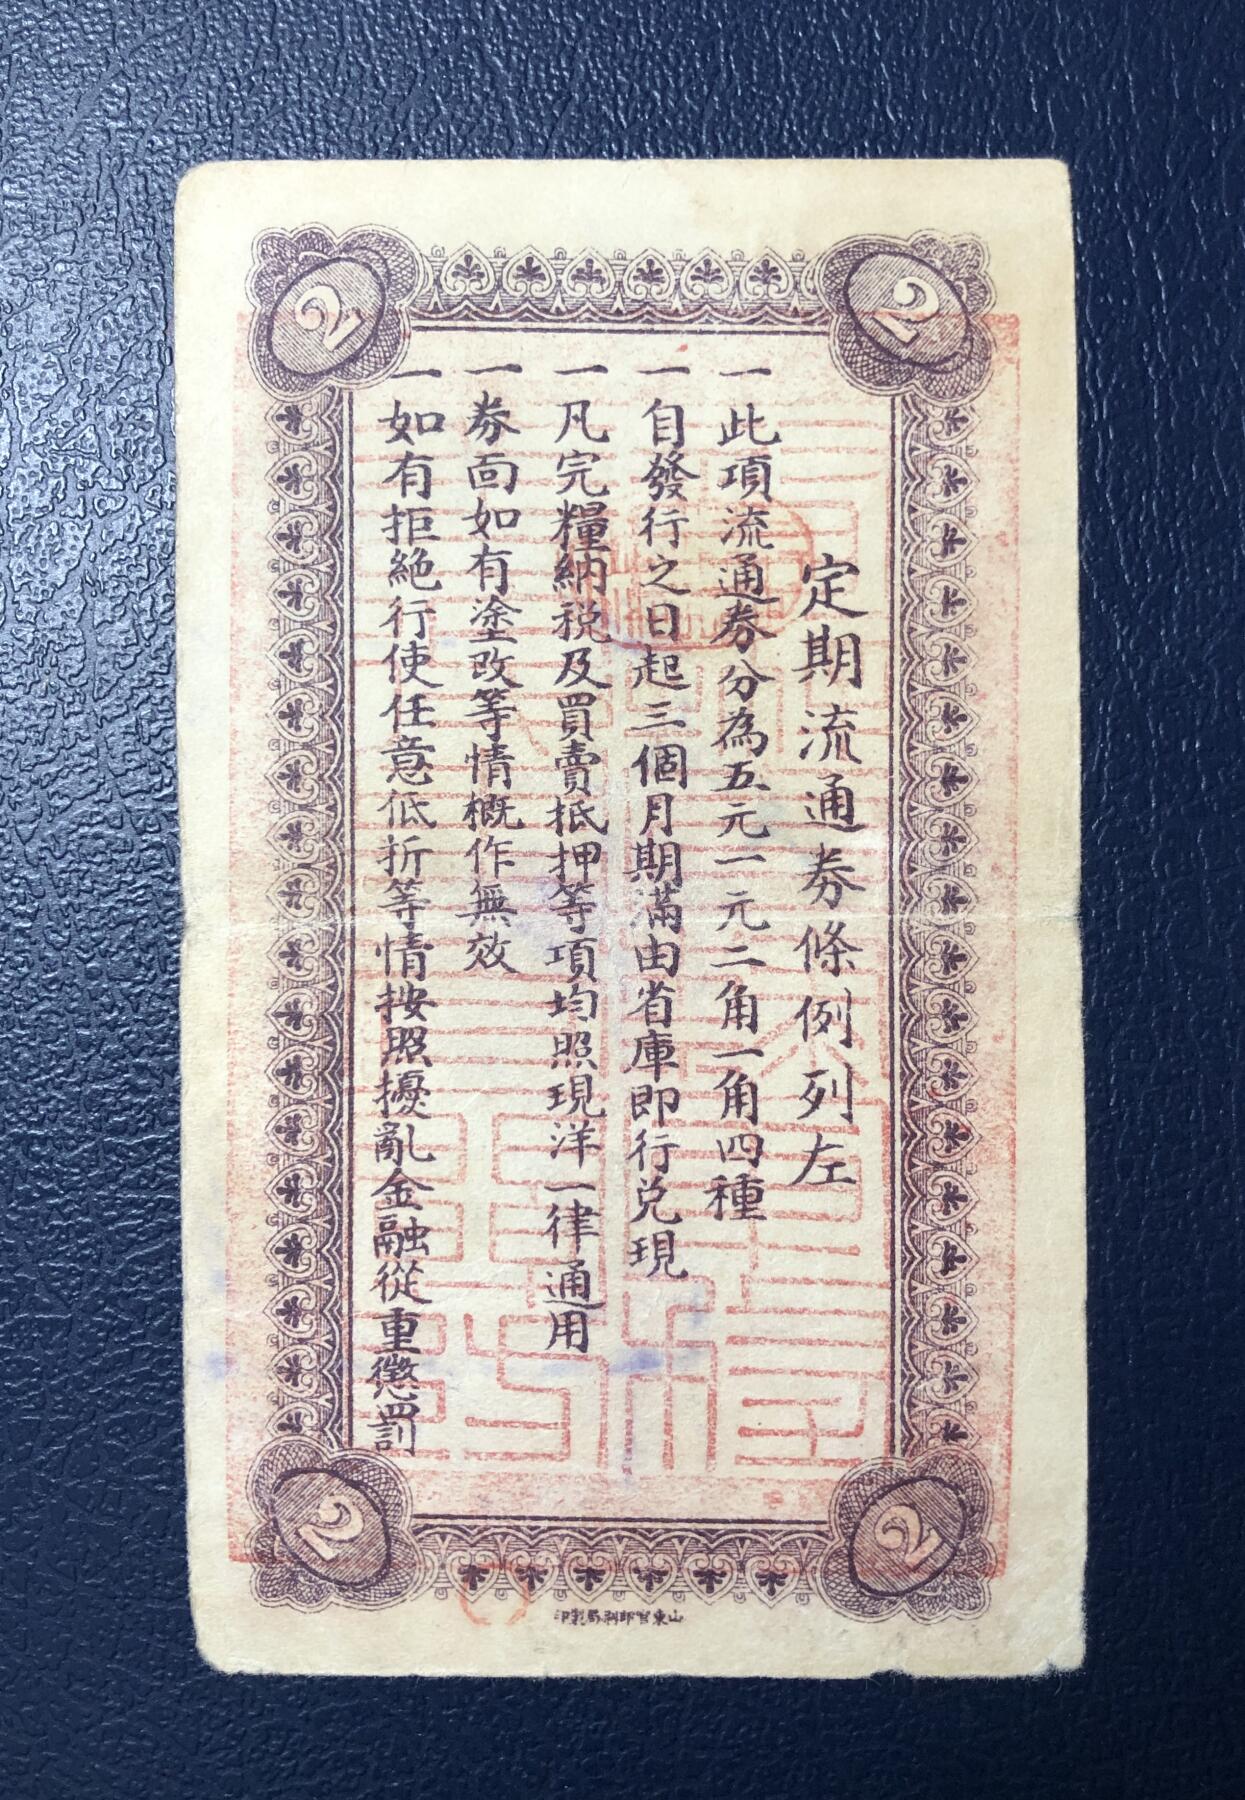 定期流通券條例列左
一此項流通券分為五元一元二角一角四種
一自發行之日起三個月期滿由省庫即行兌現
一凡完糧納稅及買賣抵押等項均照現洋一律通用
一券面如有塗改等情概作無效
一如有拒絕行使任意低折等情按照擾亂金融從重懲罰
2
2
2
2
山東官印刷局製印